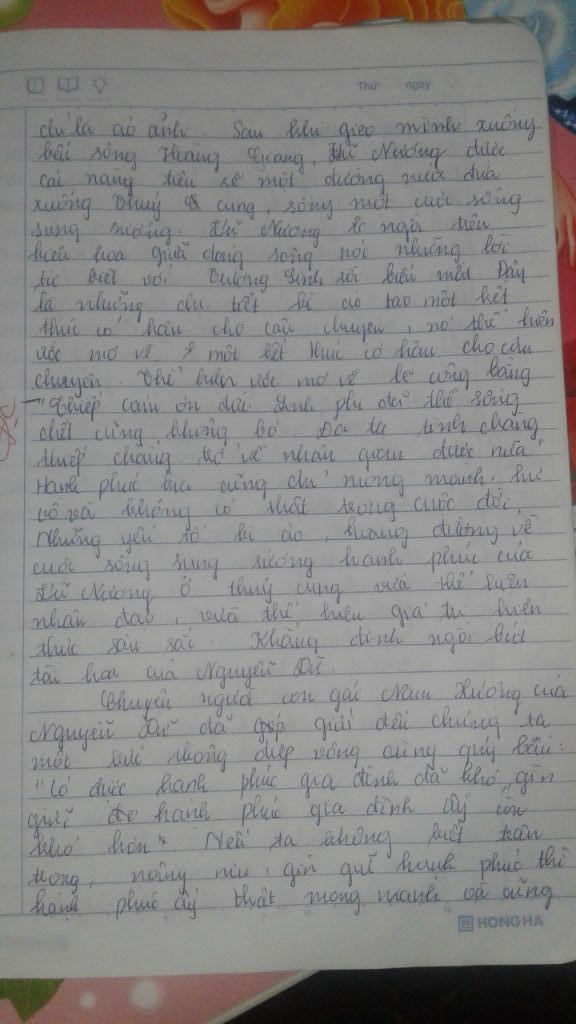 Thứ ngày
chỉ là ảo ảnh. Sau khi gieo mình xuống
bến sông Hoàng Giang, Vũ Nương được
các nàng tiên rẽ một đường nước đưa
xuống thuỷ cung, sống một cuộc sống
sung sướng. Vũ Nương ngồi trên
kiệu hoa giữa dòng sông nói những lời
từ biệt với Trương Sinh rồi biến mất. Đây
là những chi tiết kì ảo tạo một kết
thúc có hậu cho câu chuyện, nó thể hiện
ước mơ về một kết thúc có hậu cho câu
chuyện. Thể hiện ước mơ về lẽ công bằng
"Thiếp cảm ơn đức Linh phi đã thề sống
chết cũng không bỏ. Đa tạ tình chàng
thiếp chẳng trở về nhân gian được nữa."
Hạnh phúc lúc cũng chỉ mong manh, hư
vô và không có thật trong cuộc đời.
Những yếu tố kì ảo, hoang đường về
cuộc sống sung sướng hạnh phúc của
Vũ Nương ở thuỷ cung vừa thể hiện
nhân đạo, vừa thể hiện giá trị hiện
thực sâu sắc. Khẳng định ngòi bút
tài hoa của Nguyễn Dữ.
Chuyện người con gái Nam Xương của
Nguyễn Dữ đã gửi đến chúng ta
một bức thông điệp vô cùng quý báu:
"Có được hạnh phúc gia đình đã khó, gìn
giữ hạnh phúc gia đình ấy còn
khó hơn" Nếu ta không biết trân
trọng, nâng niu, gìn giữ hạnh phúc thì
hạnh phúc ấy thật mong manh và cũng
HONG HA